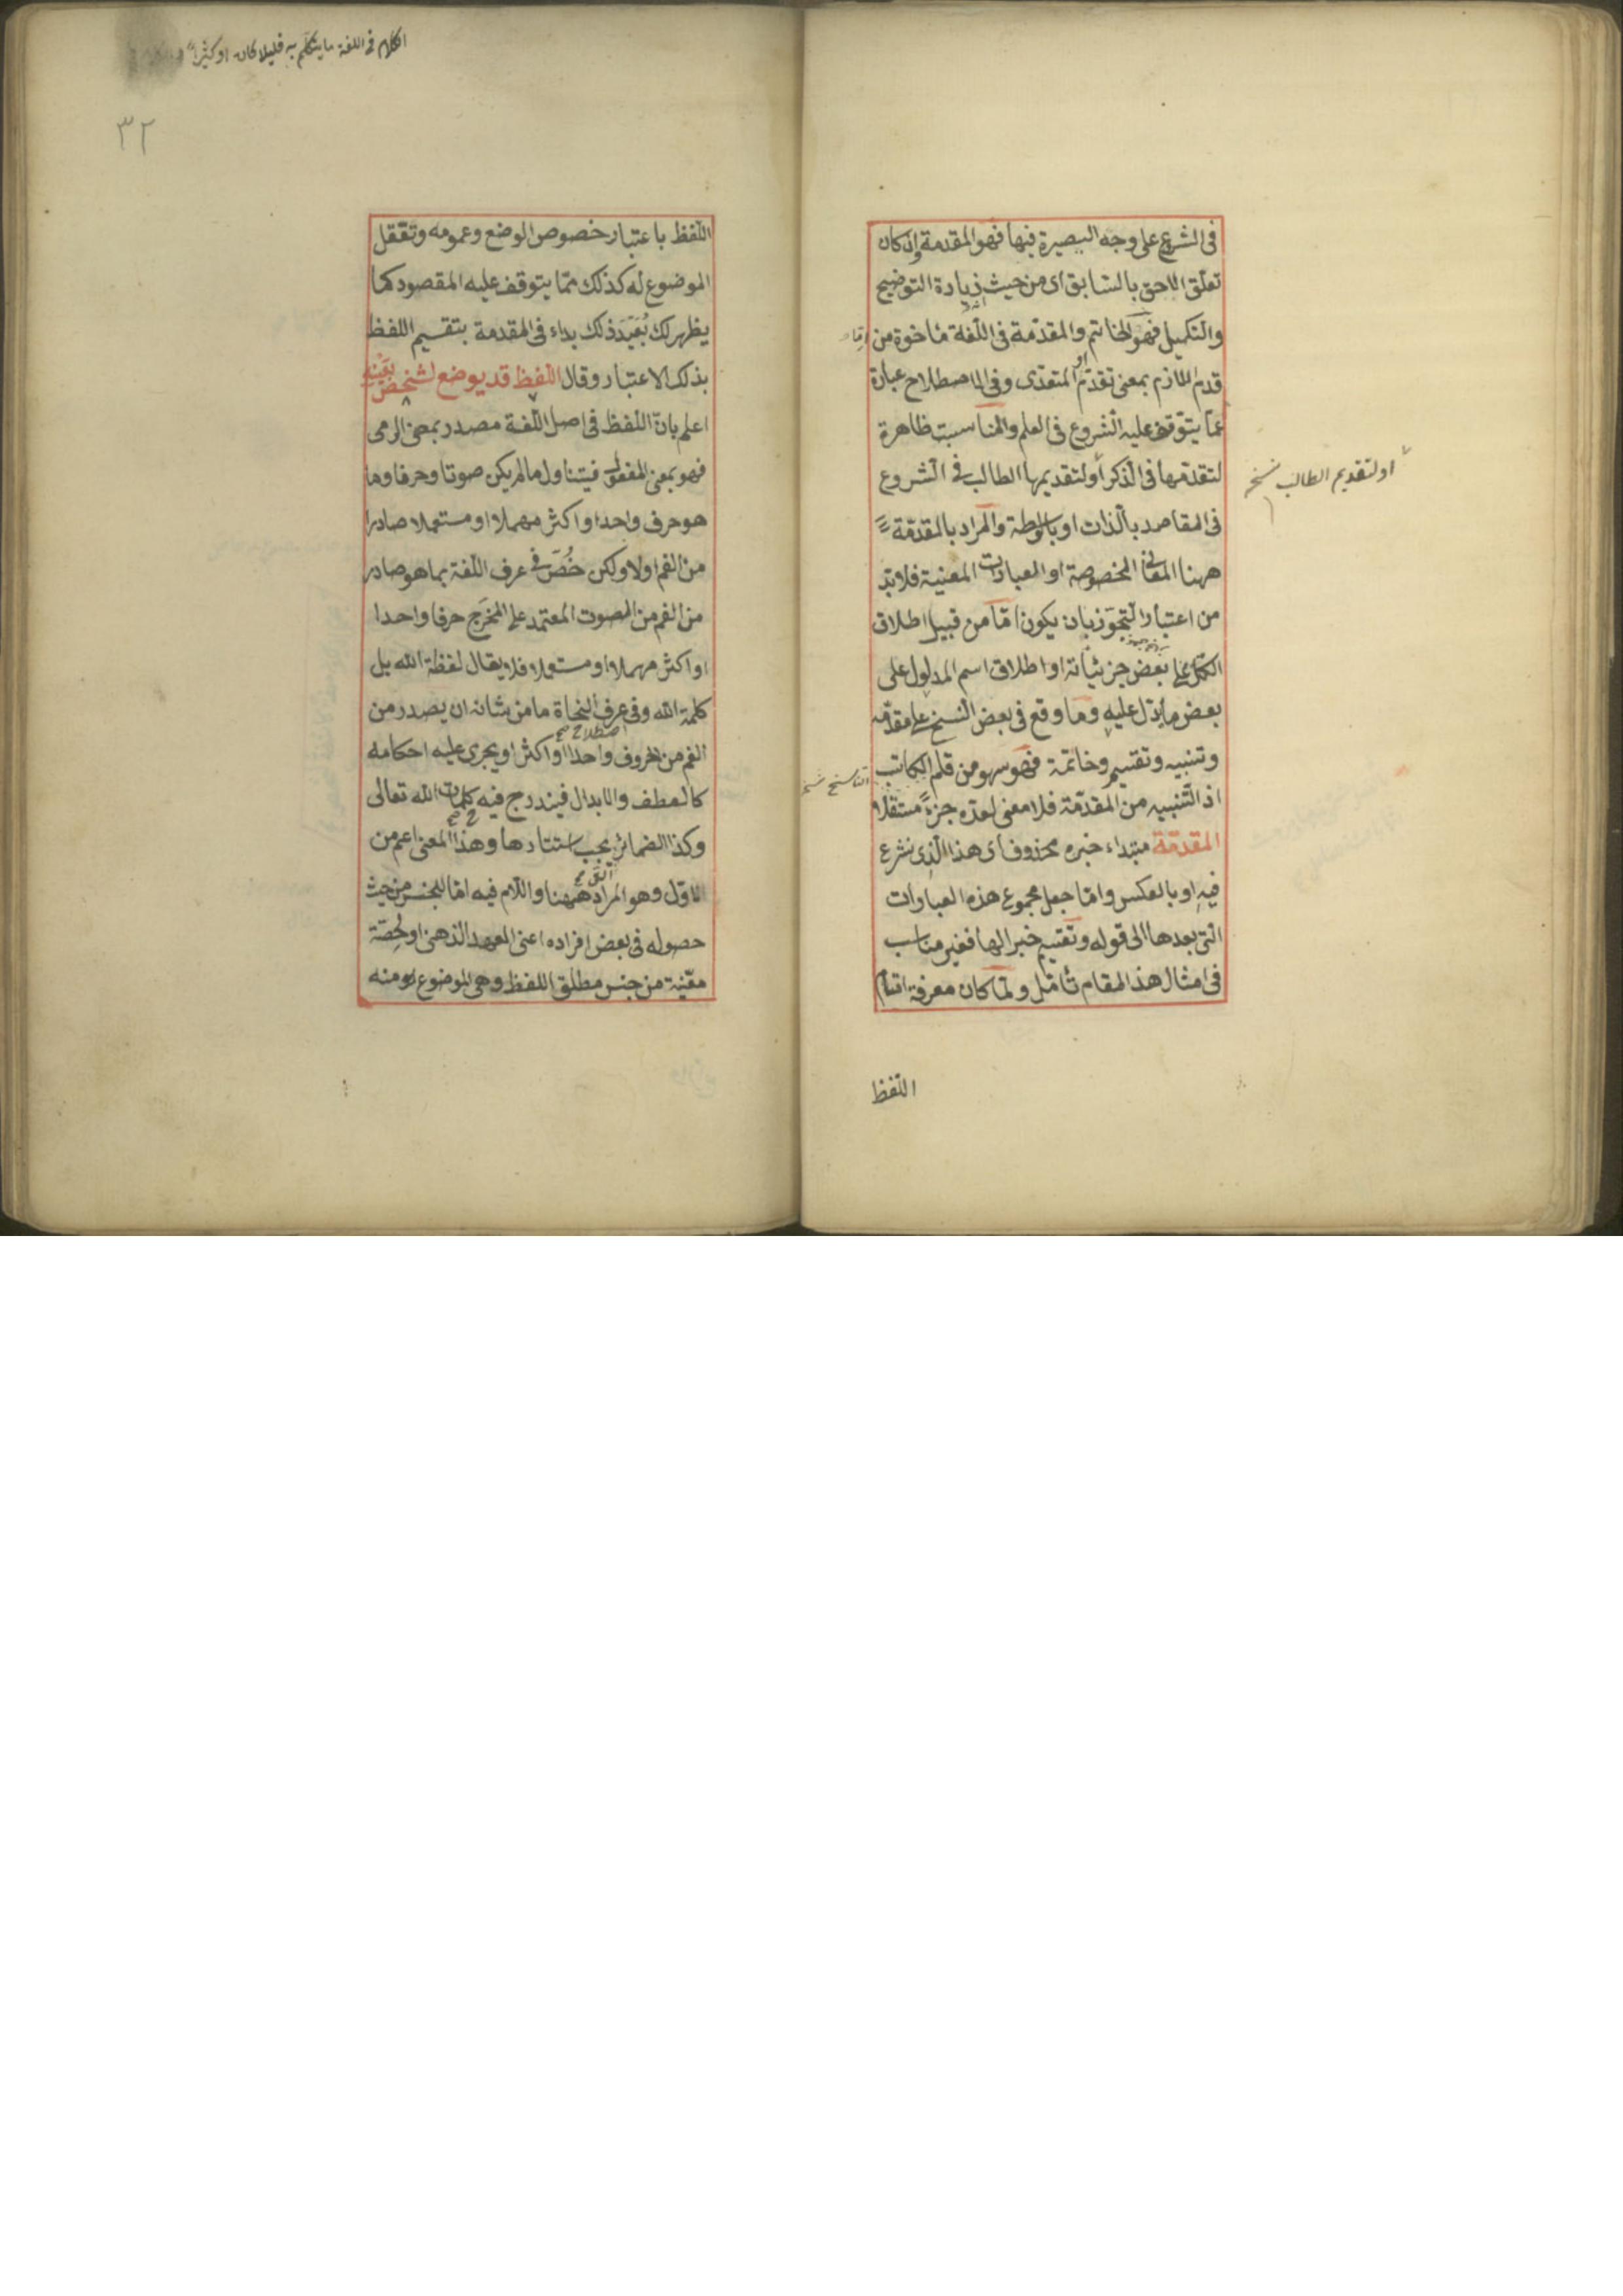 فى الشرع على وجه البصيرة فيها فهو المقدمة وان كان
تعلق اللاحق بالسابق اى من حيث زيادة التوضيح
والتكميل فهو الخاتم والمقدمة فى اللغة مأخوة من
قدم اللازم بمعنى تقدم او المتعدى وفى الاصطلاح عبارة
عما يتوقف عليه الشروع فى العلم والمناسبت ظاهرة
لتقدمها فى الذكر أو لتقديمها الطالب فى الشروع
او لتقديم الطالب نسخه
فى المقاصد بالذات او بالوسطة والمراد بالمقدمة
ههنا المعانى المخصوصة او العبارات المعنية فلابد
من اعتبار التجوز بان يكون اما من قبيل اطلاق
الكل على بعض جزئياته او اطلاق اسم المدلول على
بعض ما يدل عليه وما وقع فى بعض النسخ على مقدمة
وتنبيه وتقسيم وخاتمة فهو سهو من قلم الكاتب
الناسخ نسخه
اذ التنبيه من المقدمة فلا معنى لعده جزءً مستقلا
المقدمة مبتداء خبره محذوف اى هذا الذى نشرع
فيه او بالعكس واما جعل مجموع هذه العبارات
التى بعدها الى قوله وتقسيم خبرا لها فغير مناسب
فى امثال هذا المقام تأمل ولما كان معرفة اقسام
اللفظ
الكلام فى اللغة ما يتكلم به قليلا كان او كثيرا
٣٢
اللفظ باعتبار خصوص الوضع وعمومه وتعقل
الموضوع له كذلك مما يتوقف عليه المقصود كما
يظهر لك بُعَيْدَ ذلك بداء فى المقدمة بتقسيم اللفظ
بذلك الاعتبار وقال اللفظ قد يوضع لشخص بعينه
اعلم بان اللفظ فى اصل اللغة مصدر بمعنى الرمى
فهو بمعنى المفعول فيتناول ما لم يكن صوتا وحرفا وما
هو حرف واحد او اكثر مهملا او مستعملا صادرا
من الفم اولا ولكن خُصَّ فى عرف اللغة بما هو صادر
من الفم من الصوت المعتمد على المخرج حرفا واحدا
او اكثر مهملا او مستعملا فلا يقال لفظة الله بل
كلمة الله وفى عرف النحاة ما من شانه ان يصدر من
اصطلاح صح
الفم من الحروف واحدا او اكثر او يجرى عليه احكامه
كالعطف والابدال فيندرج فيه كلمات الله تعالى
وكذا الضمائر يجب استتارها وهذا المعنى اعم من
التى صح
الاول وهو المراد ههنا واللام فيه اما للجنس من حيث
حصوله فى بعض افراده اعنى العهد الذهنى او لحصة
معينة من جنس مطلق اللفظ وهى الموضوع له ومنه